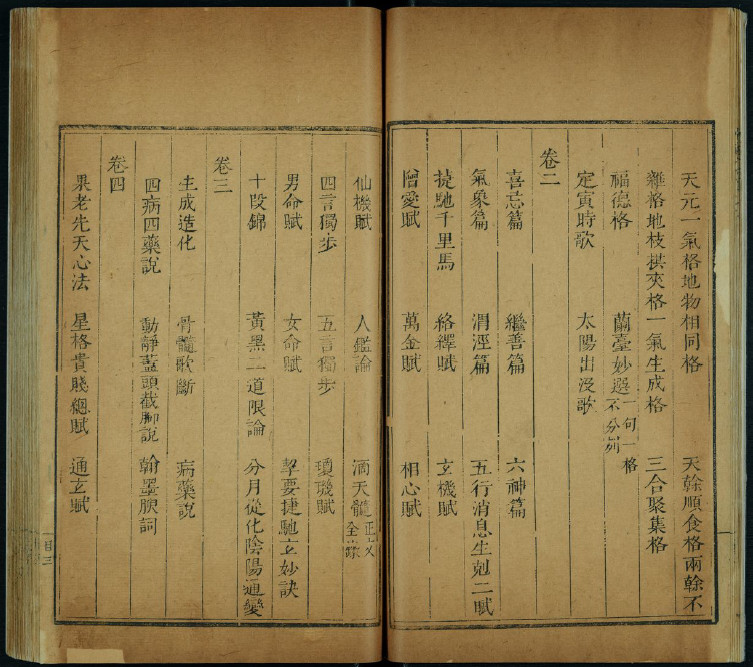 天元一氣格地物相同格　天幹順食格兩幹不
雜格地枝拱夾格一氣生成格　三合聚集格
福德格　蘭臺妙選一句一格不分列
定寅時歌　太陽出沒歌
卷二
喜忌篇　繼善篇　六神篇
氣象篇　渭涇篇　五行消息生剋二賦
捷馳千里馬　絡繹賦　玄機賦
憎愛賦　萬金賦　相心賦
仙機賦　人鑑論　滴天髓正文全錄
四言獨步　五言獨步　瓊璣賦
男命賦　女命賦　挈要捷馳玄妙訣
十段錦　黃黑二道限論　分月從化陰陽通變
卷三
生成造化　骨髓歌斷　病藥說
四病四藥說　動靜蓋頭截脚說　翰墨腴詞
卷四
果老先天心法　星格貴賤總賦　通玄賦